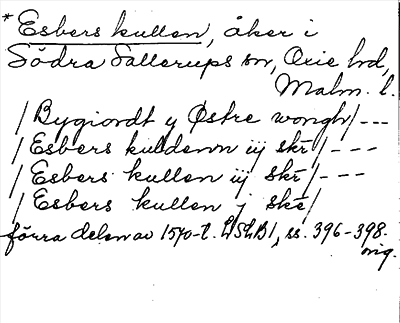 * Esbers kullen, åker i
Södra Sallerups sn, Oxie hd,
Malm. l.
/Bygiordt y Østre wongh/---
/Esbers kuldenn iij skr/---
/Esbers kullen iij skr/---
/Esbers kullen j skr/
förra delen av 1570-t. LSLB1, ss. 396-398.
orig.